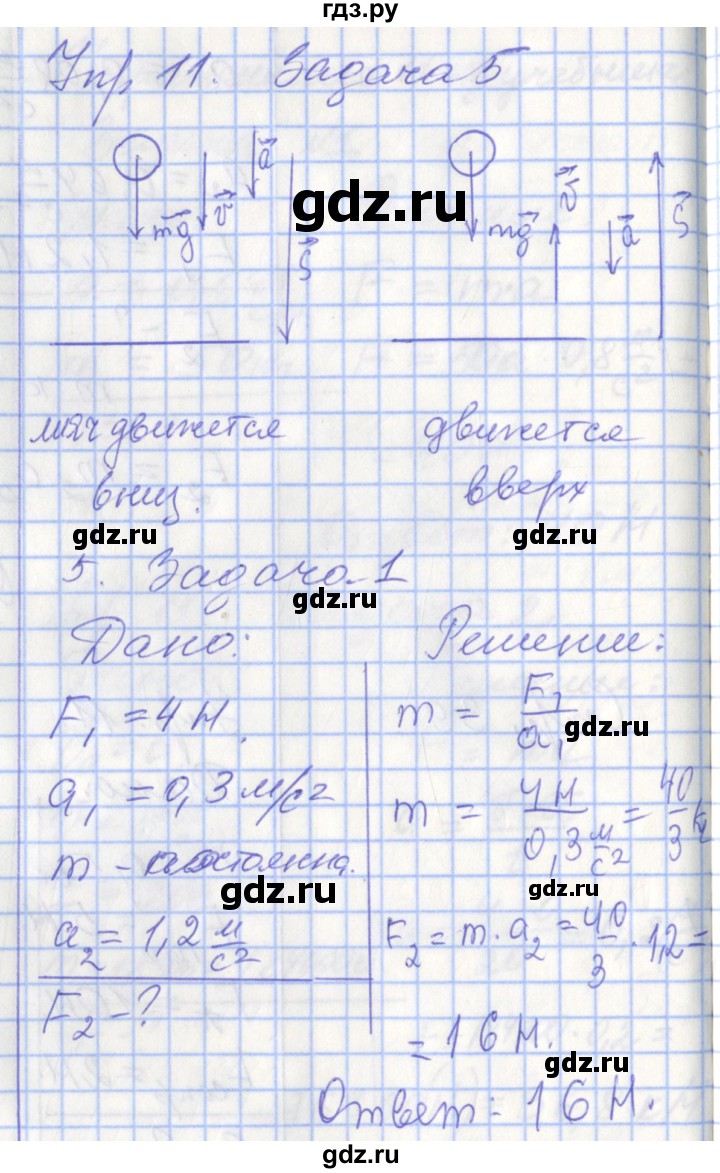 гдз.ру
Упр. 11. Задача 5
mg v a S
mg v a S
gdz.ru
gdz.ru
мяч движется вниз.
движется вверх
gdz.ru
gdz.ru
5. Задача 1
gdz.ru
Дано:
F₁ = 4 Н.
a₁ = 0,3 м/с²
m – постоянна.
gdz.ru
a₂ = 1,2 м/с²
F₂ – ?
Решение:
m = F₁/a₁
gdz.ru
m = 4 Н / 0,3 м/с² = 40/3 кг
gdz.ru
F₂ = m · a₂ = 40/3 · 1,2 =
= 16 Н.
gdz.ru
Ответ: 16 Н.
gdz.ru